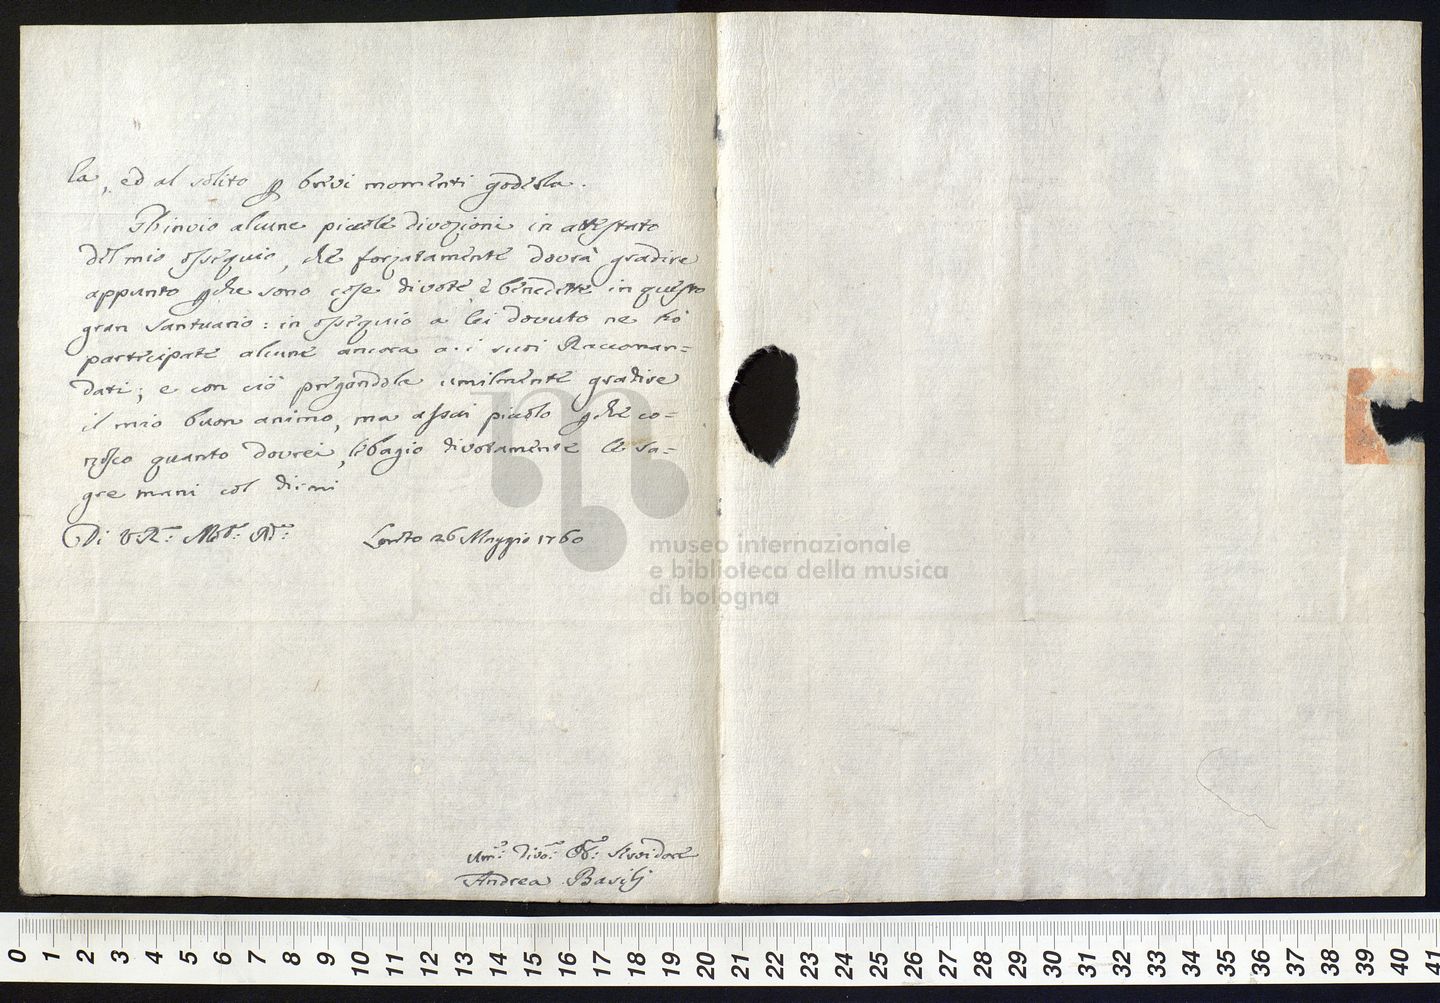 la, ed al solito p brevi momenti godela.
Gl'invio alcune picole divozioni in attestato
del mio ossequio, che forzatamente dovrà gradire
appunto pche sono cose divote e benedette in questo
gran Santuario: in ossequio a lei dovuto ne hò
participate alcune ancora a i suoi Raccoman=
dati; e con ciò pregandola umilmente gradire
il mio buon animo, ma assai picolo pche co=
nosco quanto dovrei, le bagio divotamente le sa=
gre mani col dirmi
Di V: R: Loreto 26 Maggio 1760
Um: Divo: Ob: Servidore
Andrea Basilj
museo internazionale
e biblioteca della musica
di bologna
0 1 2 3 4 5 6 7 8 9 10 11 12 13 14 15 16 17 18 19 20 21 22 23 24 25 26 27 28 29 30 31 32 33 34 35 36 37 38 39 40 41